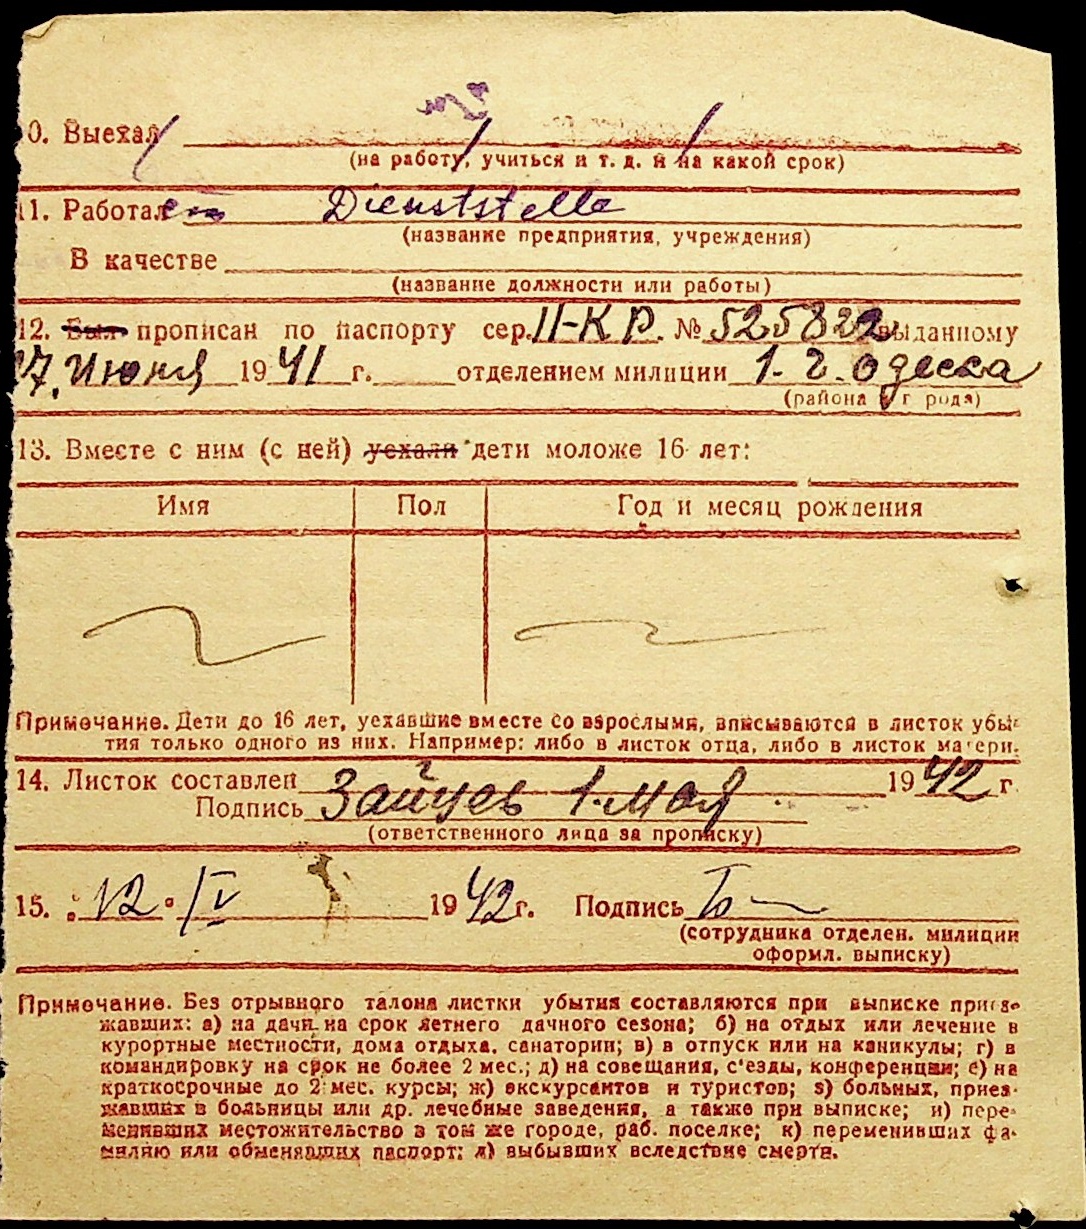 10. Выехал
(на работу, учиться и т. д. и на какой срок)
11. Работает Dienststelle
(название предприятия, учреждения)
В качестве
(название должности или работы)
12. Был прописан по паспорту сер. II-КР. № 525822 выданному
17. Июня 1941 г. отделением милиции 1. г. Одесса
(района и города)
13. Вместе с ним (с ней) уехали дети моложе 16 лет:
Имя Пол Год и месяц рождения
Примечание. Дети до 16 лет, уехавшие вместе со взрослыми, вписываются в листок убы-
тия только одного из них. Например: либо в листок отца, либо в листок матери.
14. Листок составлен 1942 г.
Подпись Зайцев 1. мая
(ответственного лица за прописку)
15. 12. IV 1942 г. Подпись
(сотрудника отделен. милиции
оформл. выписку)
Примечание. Без отрывного талона листки убытия составляются при выписке приез-
жавших: а) на дачи на срок летнего дачного сезона; б) на отдых или лечение в
курортные местности, дома отдыха, санатории; в) в отпуск или на каникулы; г) в
командировку на срок не более 2 мес.; д) на совещания, с'езды, конференции; е) на
краткосрочные до 2 мес. курсы; ж) экскурсантов и туристов; з) больных, приез-
жавших в больницы или др. лечебные заведения, а также при выписке; и) пере-
менивших местожительство в том же городе, раб. поселке; к) переменивших фа-
милию или обменявших паспорт; л) выбывших вследствие смерти.